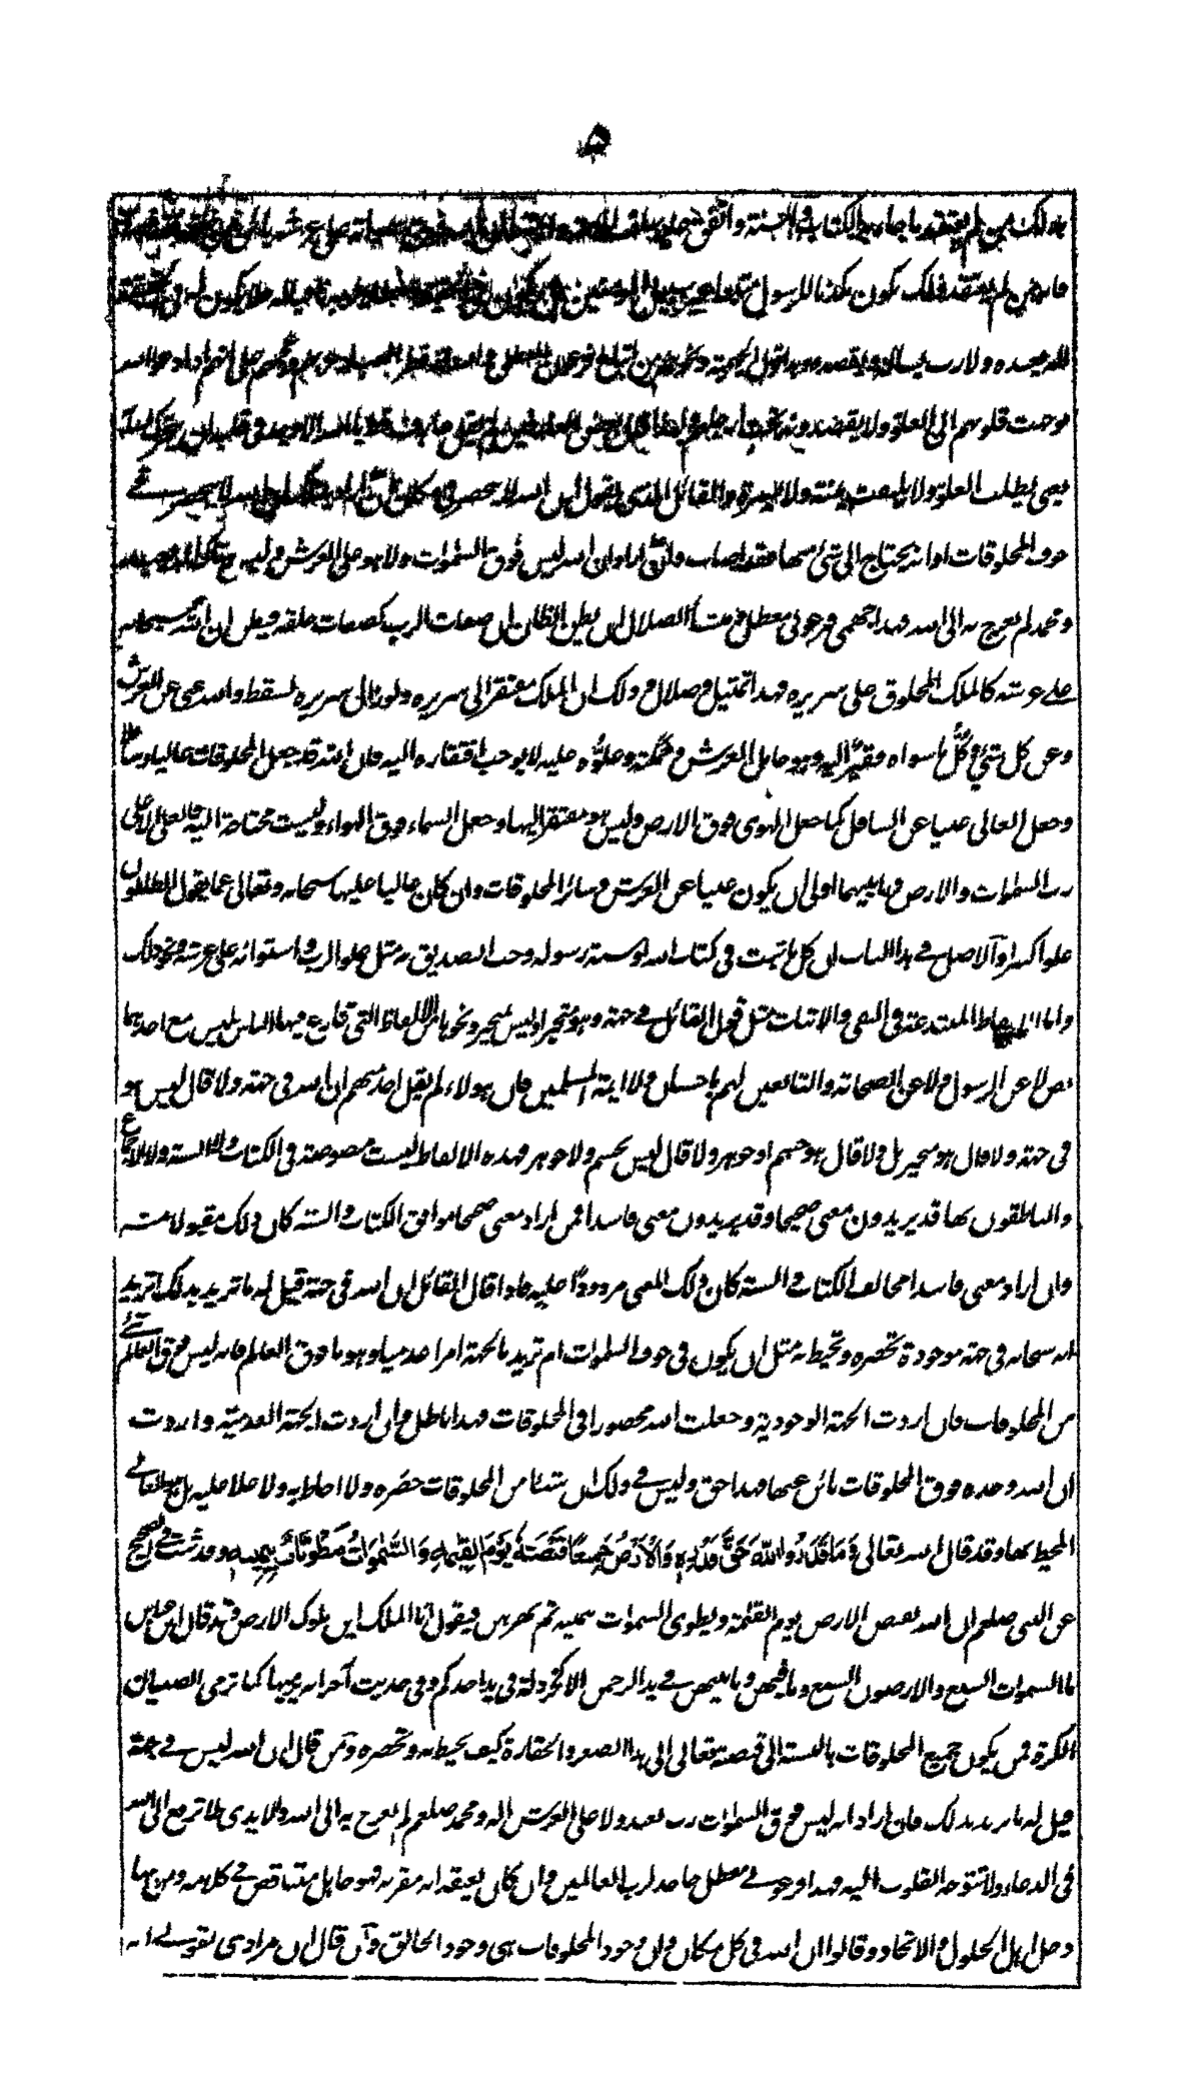 ۵
بذلك فمن لم يعتقد ما جاء به الكتاب والسنة واتفق عليه سلف الامة
فان من لم يعتقد ذلك يكون مكذبا للرسول متبعا غير سبيل المؤمنين بل يكون
اله يعبده ولا رب يسأله ويقصده وهذا قول الجهمية
فوجهت قلوبهم الى العلو ولا يقصدونه تحت ارجلهم ولهذا قال بعض العارفين لم يقل عارف قط يا الله الا وجد فى قلبه ان يتحرك لسانه
معنى يطلب العلو ولا يلتفت يمنة ولا يسرة والقائل الذى يقول ان الله لا ينحصر فى مكان ان اراد ان الله لا ينحصر فے
جوف المخلوقات او انه يحتاج الى شئ منها فقد اصاب وان اراد ان الله ليس فوق السموات ولا هو على العرش وليس
ومحمد لم يعرج به الى الله فهذا جهمى فرعونى معطل ومنشأ الضلال ان يظن الظان ان صفات الرب كصفات خلقه فيظن ان الله سبحانه
علے عرشه كالملك المخلوق على سريره فهذا تمثيل وضلال وذلك ان الملك مفتقر الى سريره ولو زال سريره لسقط والله غنى عن العرش
وعن كل شئ وكل ما سواه فقير اليه وهو حامل العرش وحملته وعلوه عليه لا يوجب افتقاره اليه فان الله قد جعل المخلوقات عاليا وسافلا
وجعل العالى غنيا عن السافل كما جعل الهوى فوق الارض وليس هو مفتقرا اليها وجعل السماء فوق الهواء وليست محتاجة اليه فالعلى الاعلى
رب السموات والارض وما بينهما اولى ان يكون غنيا عن العرش وسائر المخلوقات وان كان عاليا عليها سبحانه وتعالى عما يقول الظالمون
علوا كبيرا والاصل فے هذا الباب ان كل ما ثبت فى كتاب الله او سنة رسوله وجب التصديق به مثل علو الرب واستوائه على عرشه ونحو ذلك
واما الالفاظ المبتدعة فى النفى والاثبات مثل قول القائل فے جهة وهو متحيز او ليس بمتحيز ونحوها من الالفاظ التى تنازع فيها الناس ليس مع احدهما
نص لا عن الرسول ولا عن الصحابة والتابعين لهم باحسان ولا ايمة المسلمين فان هولاء لم يقل احد منهم ان الله فى جهة ولا قال ليس هو
فى جهة ولا قال هو متحيز بل ولا قال هو جسم او جوهر ولا قال ليس بجسم ولا جوهر فهذه الالفاظ ليست منصوصة فى الكتاب ولا السنة ولا الاجماع
والناطقون بها قد يريدون معنى صحيحا وقد يريدون معنى فاسدا فمن اراد معنى صحيحا موافق الكتاب والسنة كان ذلك مقبولا منه
وان اراد معنى فاسدا مخالف الكتاب والسنة كان ذلك المعنى مردودا عليه فاذا قال القائل ان الله فى جهة قيل له ما تريد بذلك اتريد
انه سبحانه فى جهة موجودة تحصره وتحيط به مثل ان يكون فى جوف السموات ام تريد بالجهة امرا عدميا وهو ما فوق العالم فانه ليس فوق العالم شئ
من المخلوقات فان اردت الجهة الوجودية وجعلت الله محصورا فى المخلوقات فهذا باطل وان اردت الجهة العدمية واردت
ان الله وحده فوق المخلوقات بائن عنها فهذا حق وليس فے ذلك ان شيئا من المخلوقات حصره ولا احاط به ولا علا عليه بل هو العالى
المحيط بها وقد قال الله تعالى وَمَا قَدَرُوا اللّٰهَ حَقَّ قَدْرِهٖ وَالْأَرْضُ جَمِيْعًا قَبْضَتُهٗ يَوْمَ الْقِيٰمَةِ وَالسَّمٰوَاتُ مَطْوِيَّاتٌ بِيَمِيْنِهٖ وقد ثبت فے الصحيح
عن النبى صلعم ان الله يقبض الارض يوم القيمة ويطوى السموات بيمينه ثم يهزهن فيقول انا الملك اين ملوك الارض وقد قال ابن عباس
ما السموات السبع والارضون السبع وما فيهن وما بينهن فے يد الرحمن الا كخردلة فى يد احدكم وفى حديث آخر انه يرميها كما ترمى الصبيان
الكرة فمن يكون جميع المخلوقات بالنسبة الى قبضته تعالى الى هذا الصغر والحقارة كيف يحيط به وتحصره ومن قال ان الله ليس فے جهة
قيل له ما تريد بذلك فان اراد انه ليس فوق السموات رب يعبد ولا على العرش اله ومحمد صلعم لم يعرج به الى الله والايدى لا ترفع الى الله
فى الدعاء ولا تتوجه القلوب اليه فهذا فرعونے معطل جاحد لرب العالمين وان كان يعتقد انه مقر به فهو جاهل متناقض فے كلامه ومن هنا
دخل اهل الحلول والاتحاد وقالوا ان الله فى كل مكان وان وجود المخلوقات هى وجود الخالق وان قال ان مرادى بقولے انه